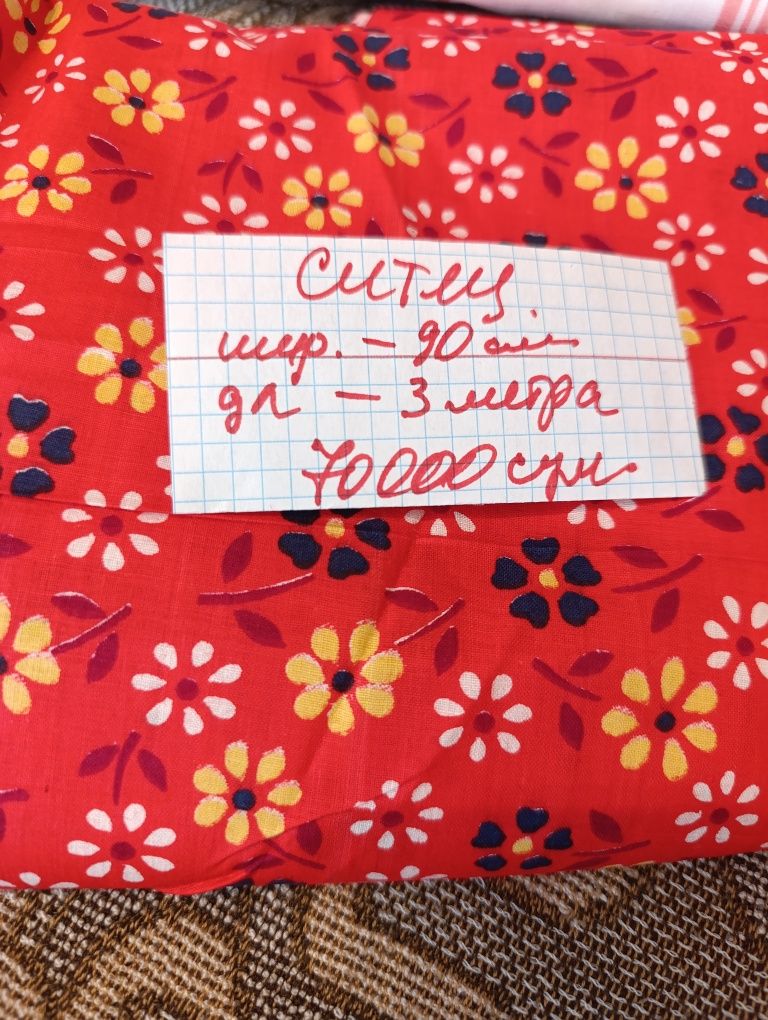 Ситец
шир. – 90 см
дл – 3 метра
70000 сум